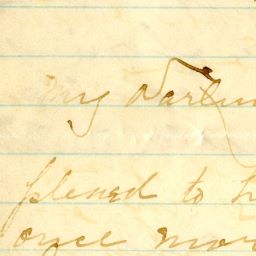 My Darlin
pleased to h
once mor